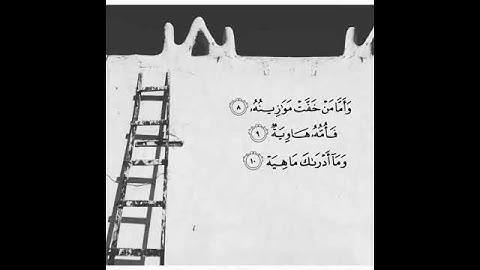 وَأَمَّا مَنْ خَفَّتْ مَوَٰزِينُهُۥ ٨
فَأُمُّهُۥ هَاوِيَةٌ ٩
وَمَآ أَدْرَىٰكَ مَا هِيَهْ ١٠